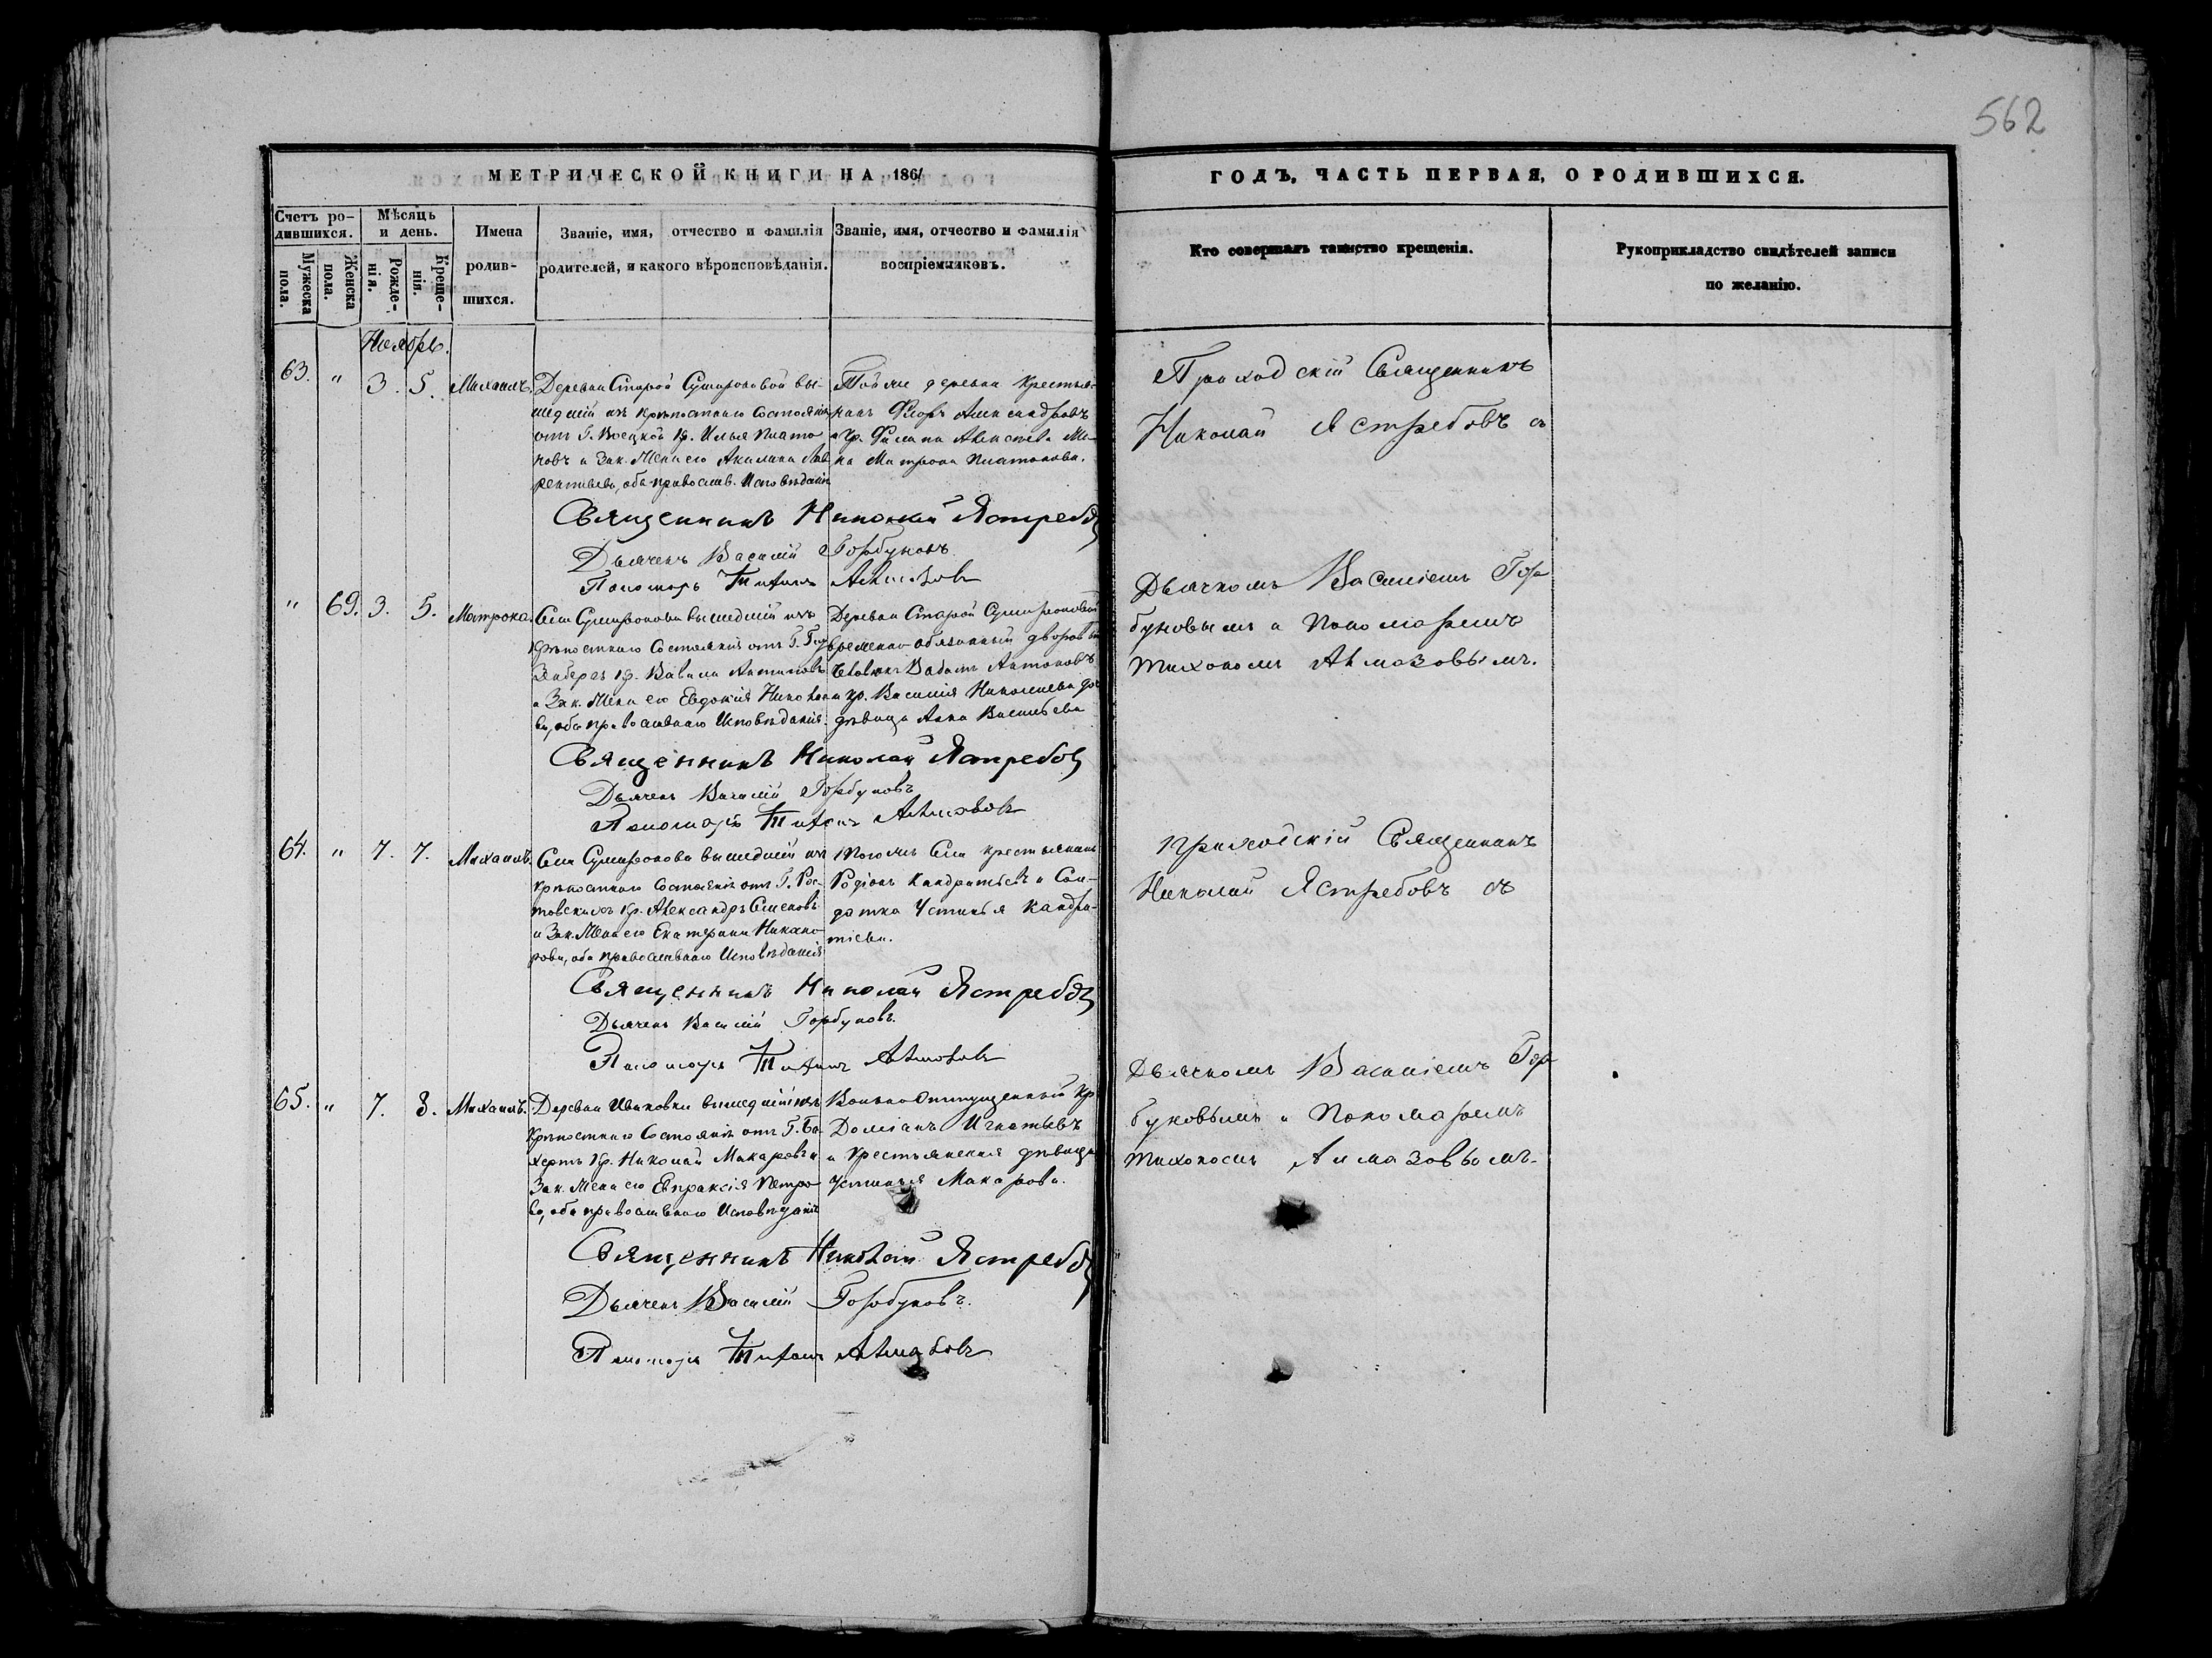 562
МЕТРИЧЕСКОЙ КНИГИ НА 1861
ГОДЪ, ЧАСТЬ ПЕРВАЯ, О РОДИВШИХСЯ.
Счетъ ро-
дившихся.
Мужеска пола.
Женска пола.
Мѣсяцъ
и день.
Рожде-
нія.
Креще-
нія.
Имена
родив-
шихся.
Званіе, имя, отчество и фамилія
родителей, и какого вѣроисповѣданія.
Званіе, имя, отчество и фамилія
воспріемниковъ.
Кто совершалъ таинство крещенія.
Рукоприкладство свидѣтелей записи
по желанію.
Ноябрь.
63. " 3. 5. Михаилъ.
Деревни Старой Сумароковой вы-
шедшій изъ крѣпостнаго состоянія
отъ Г. кр. Илья Плато
новъ и Зак. Жена его Акилина Лав
рентьева, оба православ. Исповѣданія
Тойже деревни крестья-
нинъ Флоръ Александровъ
и кр. Филипа Алексѣева же-
на Матрона Платонова.
Священникъ Николай Ястребовъ
Дьячекъ Василій Горбуновъ
Пономарь Тихонъ Алмазовъ
Приходскій Священникъ
Николай Ястребовъ съ
Дьячкомъ Василіемъ Гор
буновымъ и Пономаремъ
Тихономъ Алмазовымъ.
" 69. 3. 5. Матрона.
Села Сумарокова вышедшій изъ
крѣпостнаго состоянія отъ Г.
кр. Вавила Антиповъ
и Зак. Жена его Евдокія Никола
ева, оба православнаго Исповѣданія.
Деревни Старой Сумароковой
временно-обязанный дворовый
человѣкъ Антоновъ
и кр. Василія Николаева до
дѣвица Анна Васильева
Священникъ Николай Ястребовъ
Дьячекъ Василій Горбуновъ
Пономарь Тихонъ Алмазовъ
64. " 7. 7. Михаилъ.
Села Сумарокова вышедшій изъ
крѣпостнаго состоянія отъ Г. Рос-
товскихъ кр. Александръ Семеновъ
и Зак. Жена его Екатерина Никано
рова, оба православнаго Исповѣданія
Тогожъ Села крестьянинъ
Родіонъ Кандратьевъ и Сол-
датка Устинья Кандра-
тіева.
Священникъ Николай Ястребовъ
Дьячекъ Василій Горбуновъ.
Пономарь Тихонъ Алмазовъ
Приходскій Священникъ
Николай Ястребовъ съ
Дьячкомъ Василіемъ Гор
буновымъ и Пономаремъ
Тихономъ Алмазовымъ.
65. " 7. 8. Михаилъ.
Деревни Ивановки вышедшій изъ
крѣпостнаго состоянія отъ Г. Ба-
хертъ кр. Николай Макаровъ и
Зак. Жена его Евпраксія Петро
ва, оба православнаго Исповѣданія
Вольноотпущенный кр
Доміанъ Игнатьевъ
и крестьянская дѣвица
Устинья Макарова.
Священникъ Николай Ястребовъ
Дьячекъ Василій Горбуновъ.
Пономарь Тихонъ Алмазовъ